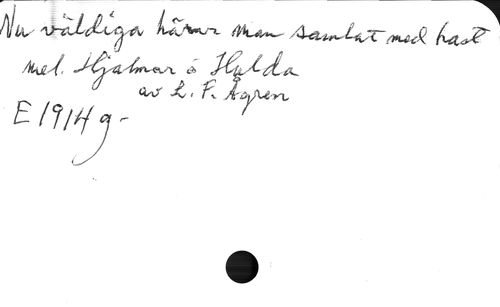 Nu väldiga härar man samlat med hast
mel. Hjalmar o Hulda
av L. F. Ågren
E 1914 g -